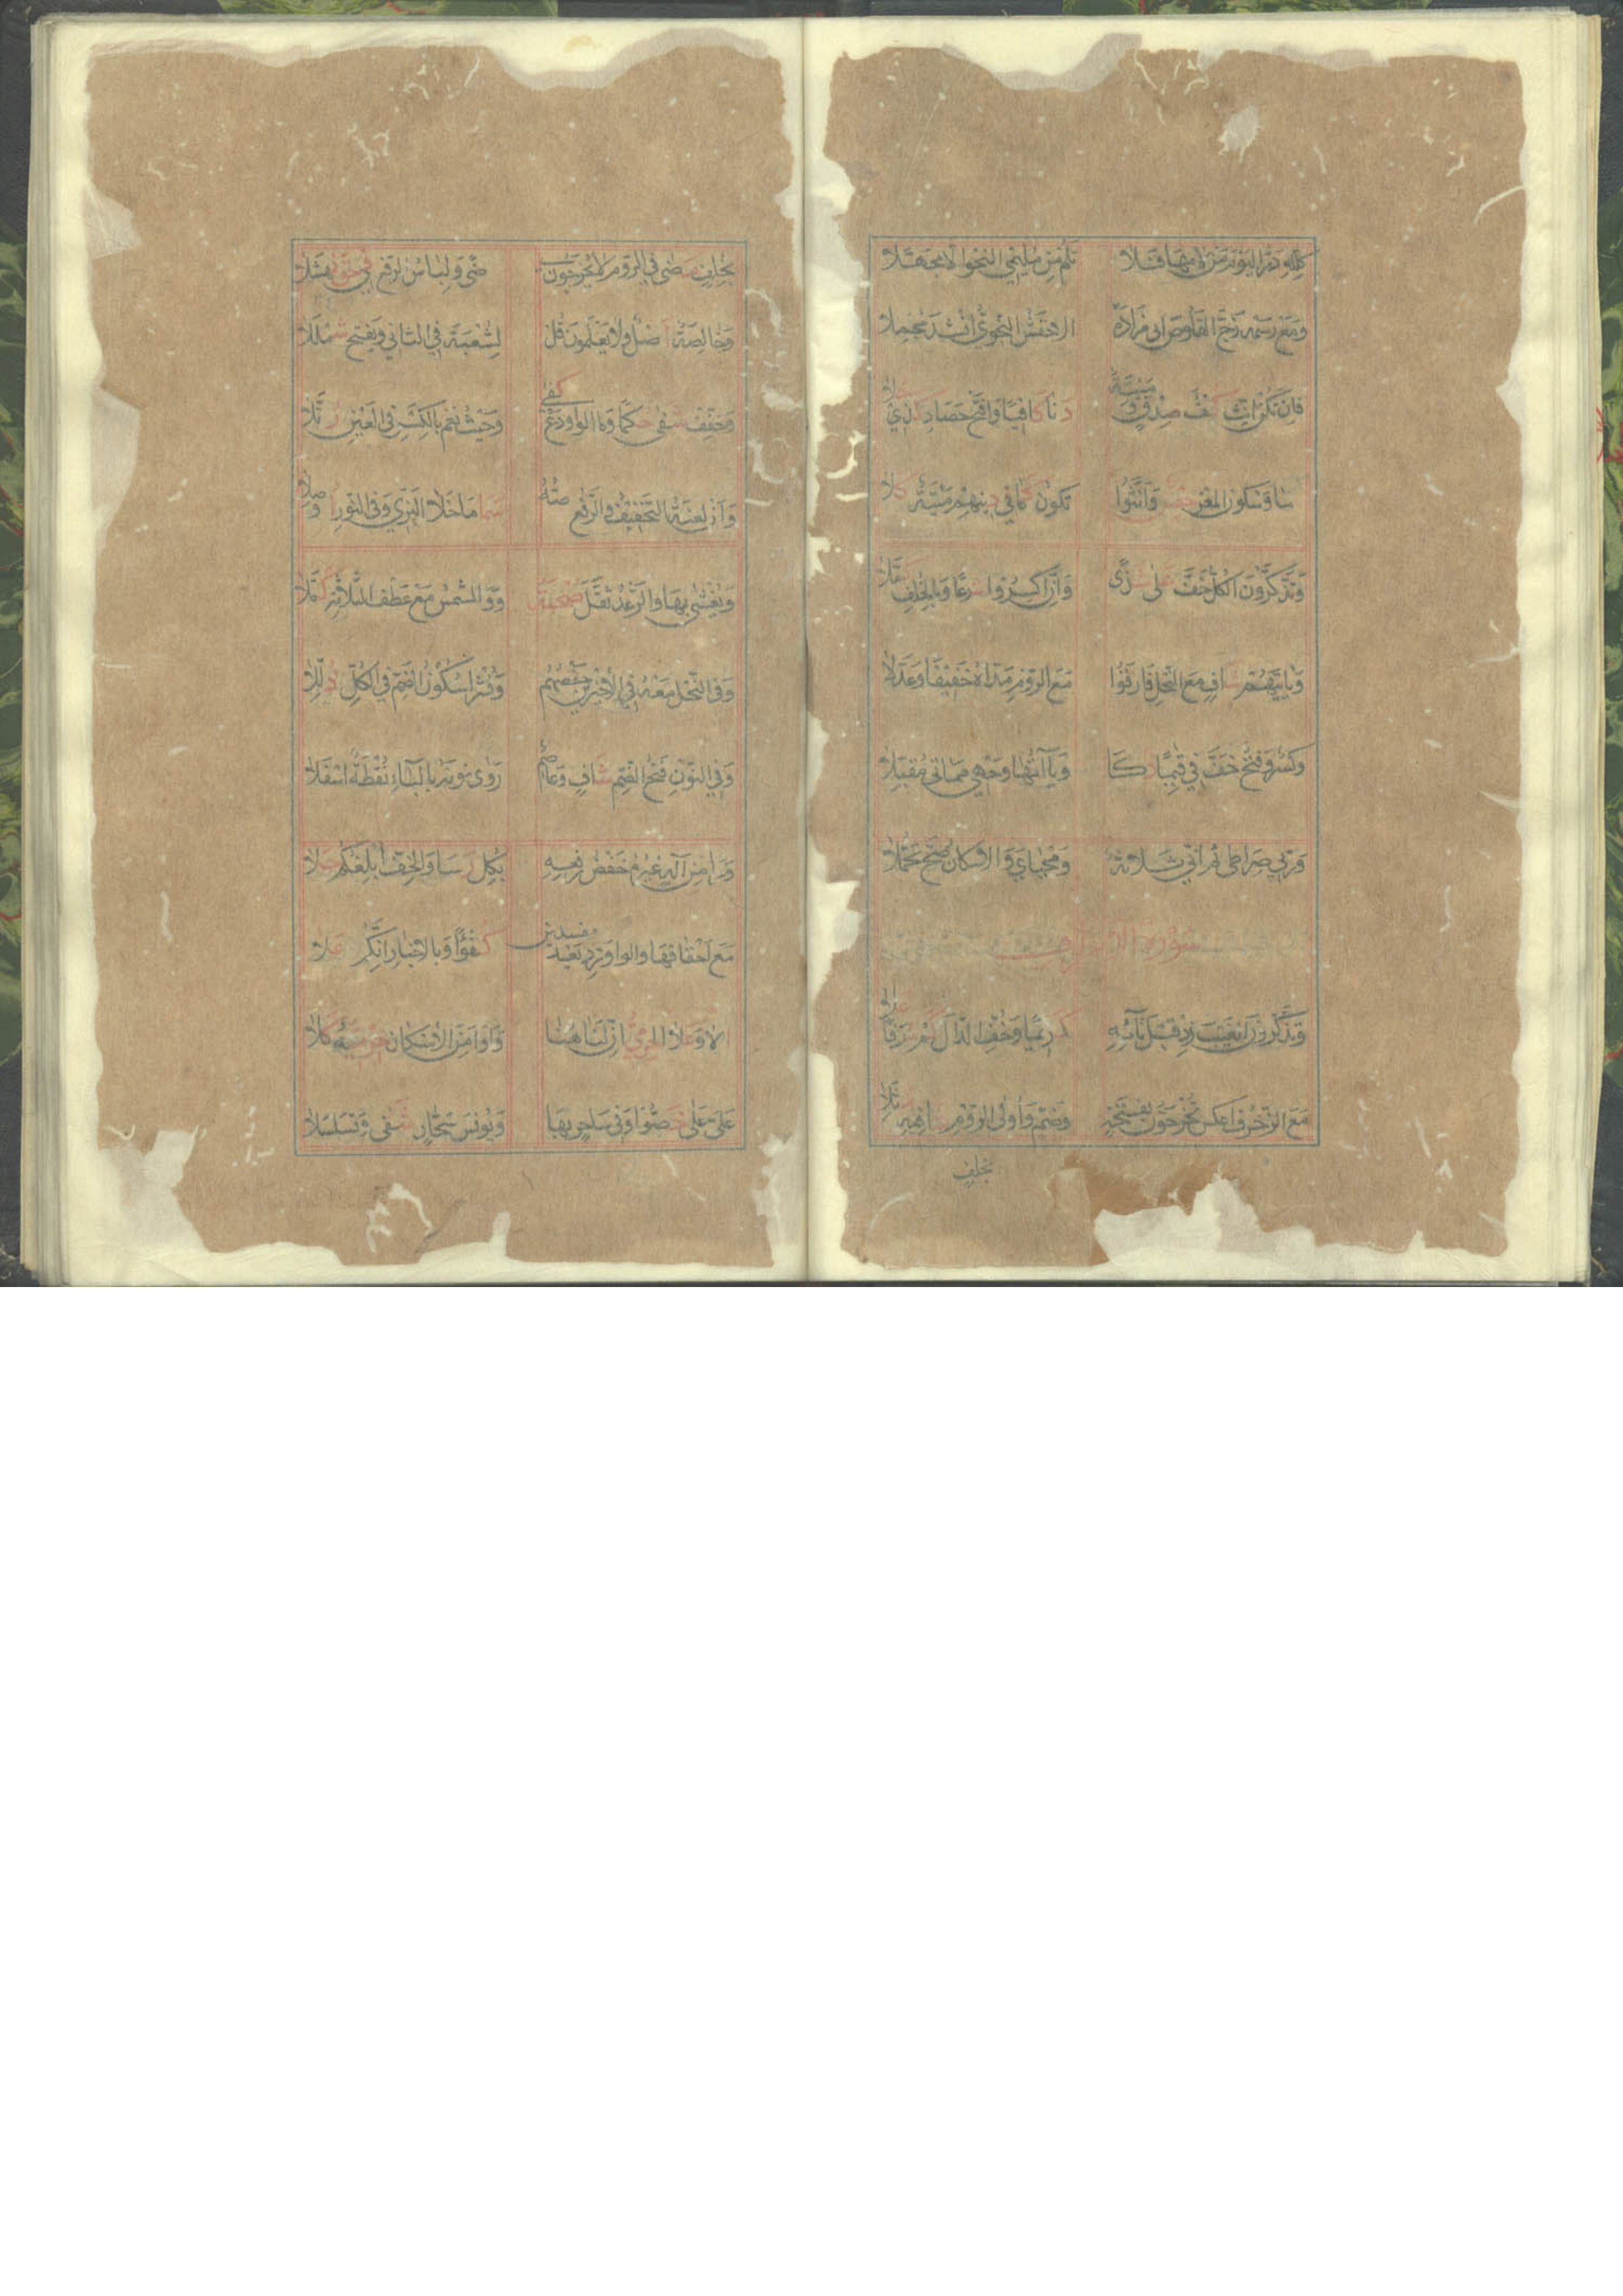 كلله در اليوم من لامها فلا تلم من مليمي النحو الا مجهلا
ومع رسمه زج القلوص ابي مزادة الاخفش النحوي انشد مجملا
فان تكن انث كفء صدق وميتة دنا كافيا وافتح حصاد كذي حلا
نما وسكون المعز حصن وانثوا تكون كما في دينهم ميتة كلا
وتذكرون الكل خف على شذى وان اكسروا شرعا وبالخف كملا
وياتيهم شاف مع النحل فارقوا مع الروم مداه خفيفا وعدلا
وكسر وفتح خف في قيما ذكا وياآتها وجهي مماتي مقبلا
وربي صراطي ثم اني ثلاثة ومحياي والاسكان صح تحملا
سورة الاعراف
وتذكرون الغيب زد قبل تائه كريما وخف الذال كم شرفا علا
مع الزخرف اعكس تخرجون بفتحة وضم واولى الروم شافيه مثلا
بخلف
بخلف مضى في الروم لا يخرجون في رضى ولباس الرفع في حق نهشلا
وخالصة اصل ولا يعلمون قل لشعبة في الثاني ويفتح شمللا
وخفف شفى حكما وما الواو دع كفى وحيث نعم بالكسر في العين رتلا
وان لعنة التخفيف والرفع نصه سما ما خلا البزي وفي النور اوصلا
ويغشي بها والرعد ثقل صحبة ووالشمس مع عطف الثلاثة كملا
وفي النحل معه في الاخيرين حفصهم ونشرا سكون الضم في الكل ذللا
وفي النون فتح الضم شاف وعاصم روى نونه بالباء نقطة اسفلا
ورا من اله غيره خفض رفعه بكل رسا والخف ابلغكم حلا
مع احقافها والواو زد بعد مفسدين كفؤا وبالاخبار انكم علا
الا وعلا الحرمي ان لنا هنا واوامن الاسكان حرميه كلا
علي على خصوا وفي ساحر بها ويونس سحار شفى وتسلسلا